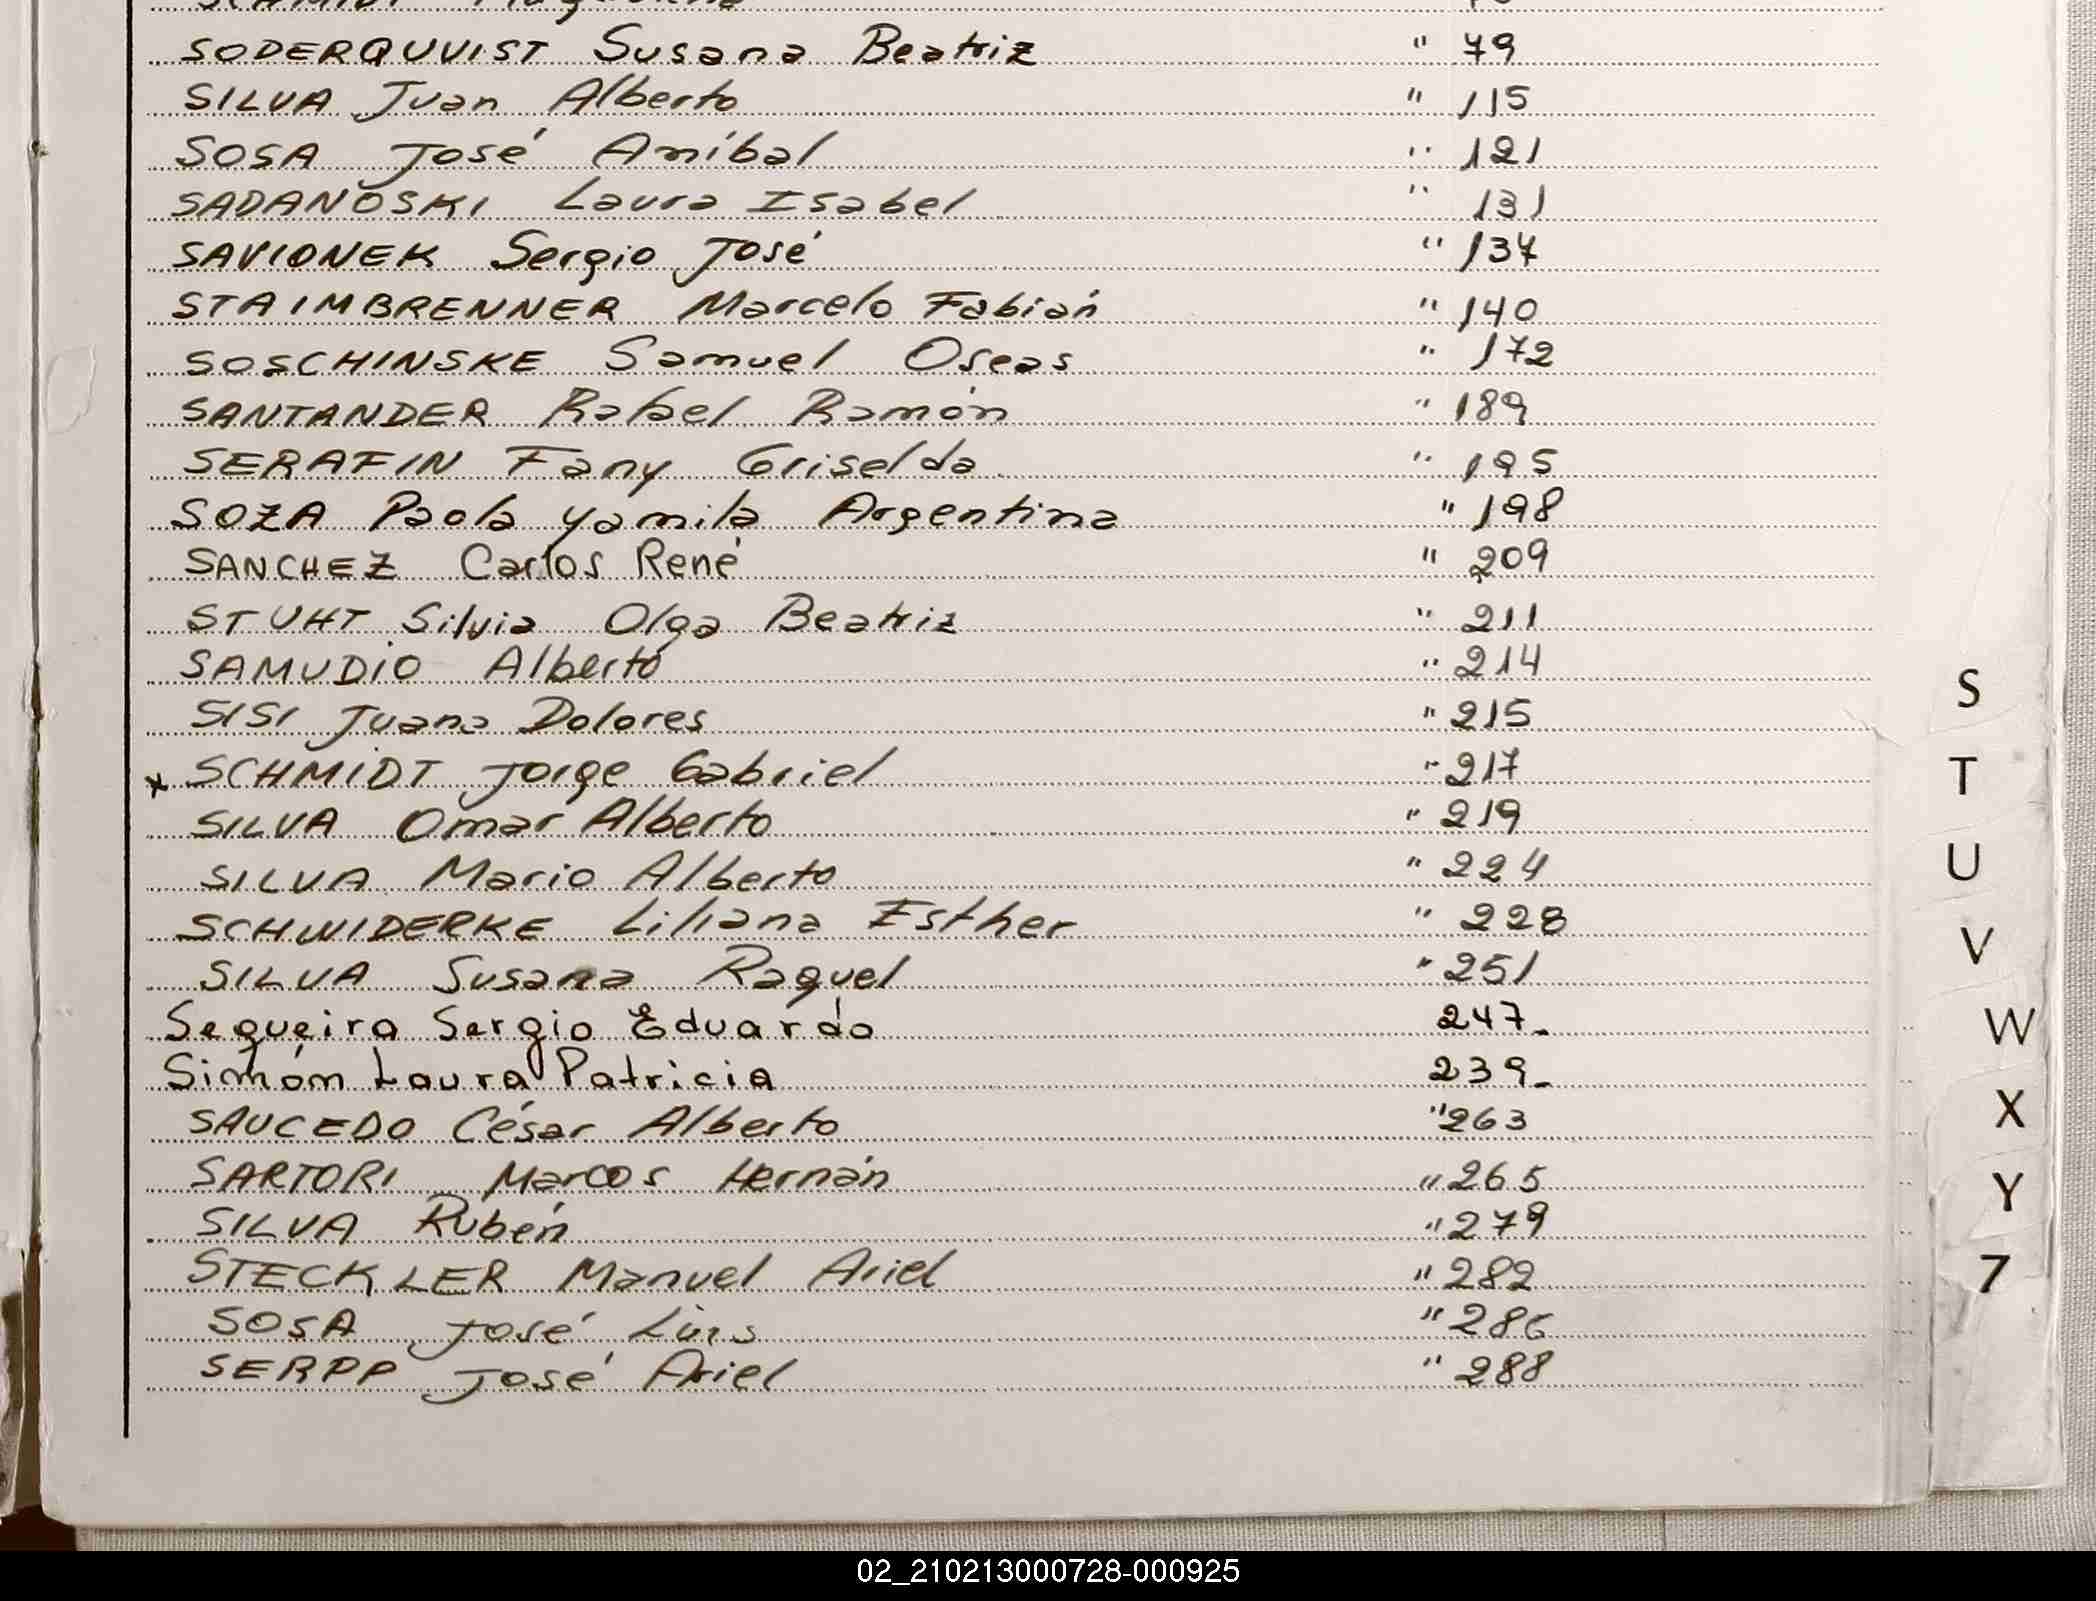 SODERQUVIST Susana Beatriz " 79
SILVA Juan Alberto " 115
SOSA José Aníbal " 121
SADANOSKI Laura Isabel " 131
SAVIONEK Sergio José " 137
STAIMBRENNER Marcelo Fabián " 140
SOSCHINSKE Samuel Oseas " 172
SANTANDER Rafael Ramón " 189
SERAFIN Fany Griselda " 195
SOZA Paola Yamila Argentina " 198
SANCHEZ Carlos René " 209
STUHT Silvia Olga Beatriz " 211
SAMUDIO Alberto " 214
SISI Juana Dolores " 215
x SCHMIDT Jorge Gabriel " 217
SILVA Omar Alberto " 219
SILVA Mario Alberto " 224
SCHWIDERKE Liliana Esther " 228
SILVA Susana Raquel " 251
Sequeira Sergio Eduardo 247-
Simón Laura Patricia 239-
SAUCEDO César Alberto " 263
SARTORI Marcos Hernán " 265
SILVA Rubén " 279
STECKLER Manuel Ariel " 282
SOSA José Luis " 286
SERPP José Ariel " 288
S
T
U
V
W
X
Y
7
02_210213000728-000925